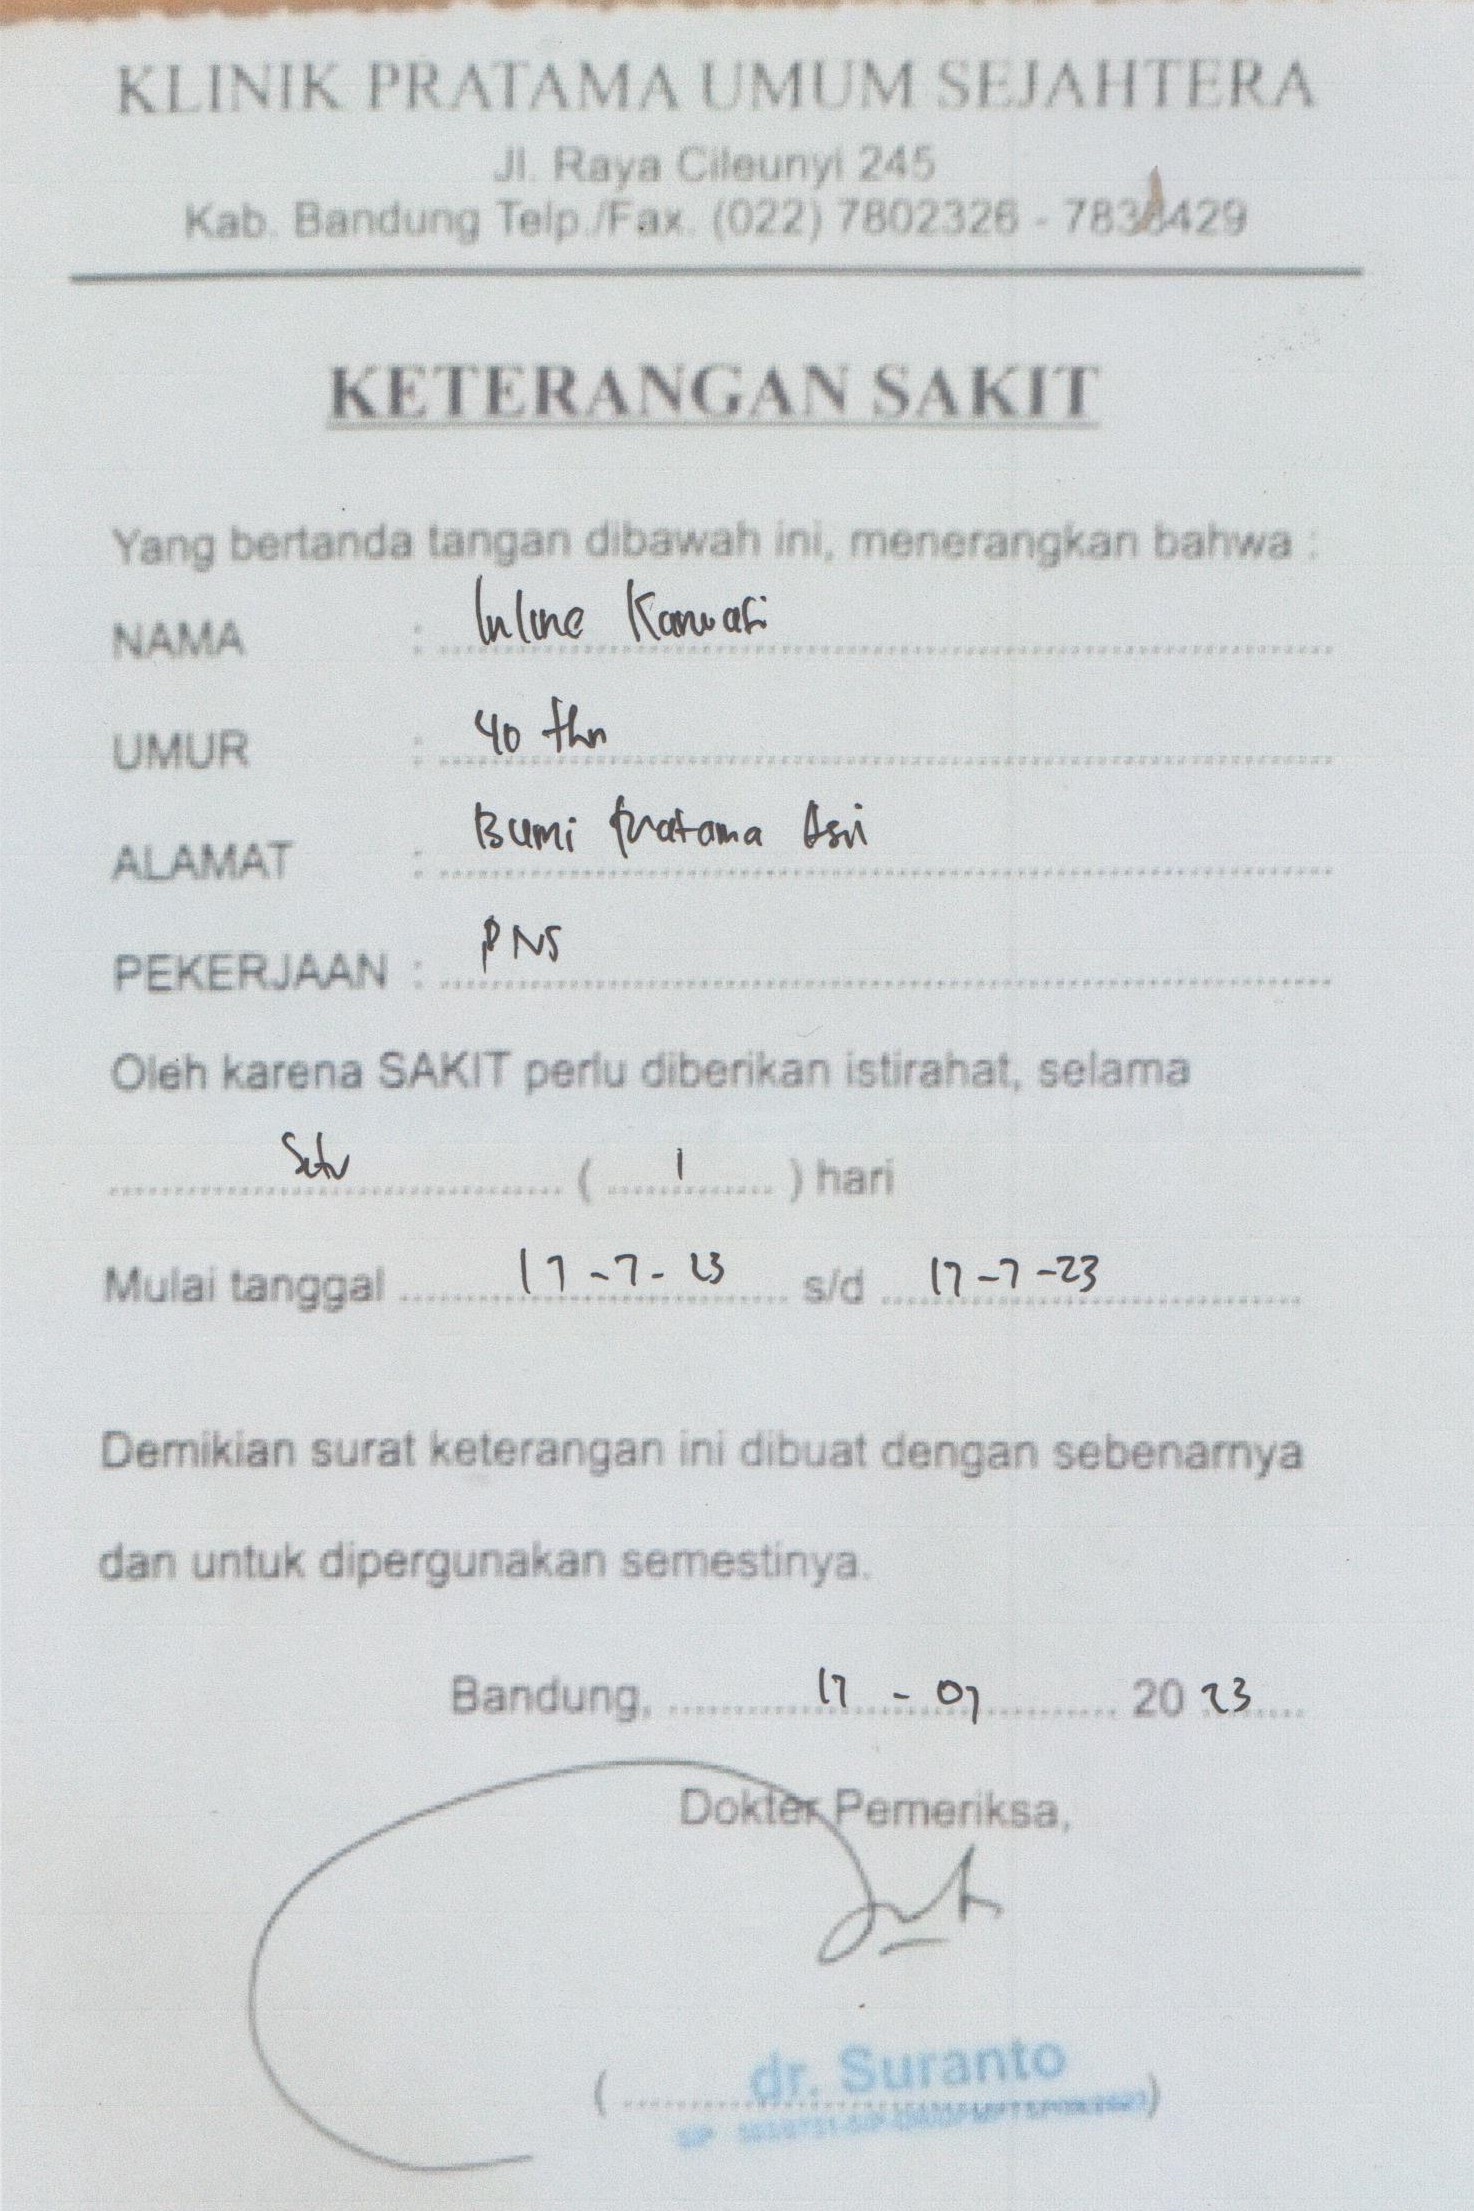 KLINIK PRATAMA UMUM SEJAHTERA
Jl. Raya Cileunyi 245
Kab. Bandung Telp./Fax. (022) 7802326 - 7838429
KETERANGAN SAKIT
Yang bertanda tangan dibawah ini, menerangkan bahwa :
NAMA :
UMUR : 40 thn
ALAMAT : Bumi Pratama Asri
PEKERJAAN : PNS
Oleh karena SAKIT perlu diberikan istirahat, selama
Satu ( 1 ) hari
Mulai tanggal 17-7-23 s/d 17-7-23
Demikian surat keterangan ini dibuat dengan sebenarnya
dan untuk dipergunakan semestinya.
Bandung, 17 - 07 20 23
Dokter Pemeriksa,
( dr. Suranto )
SIP